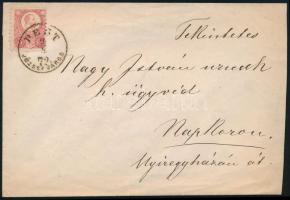 Tekintetes
PEST
72
JÓZSEFVÁROS
Nagy István urnak
h. ügyvéd
Napkoron.
Nyiregyházán át.